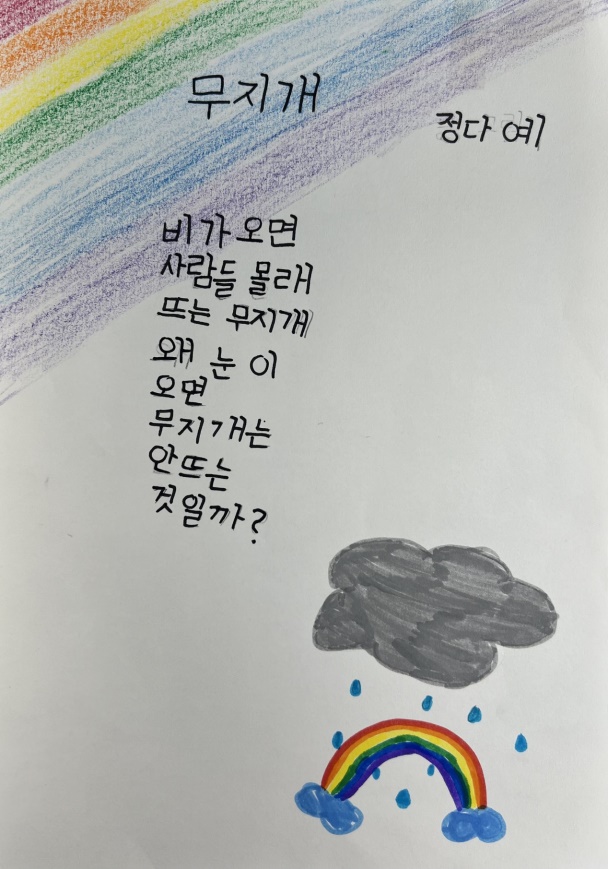 무지개
정다예
비가오면
사람들 몰래
뜨는 무지개
왜 눈이
오면
무지개는
안뜨는
것일까?